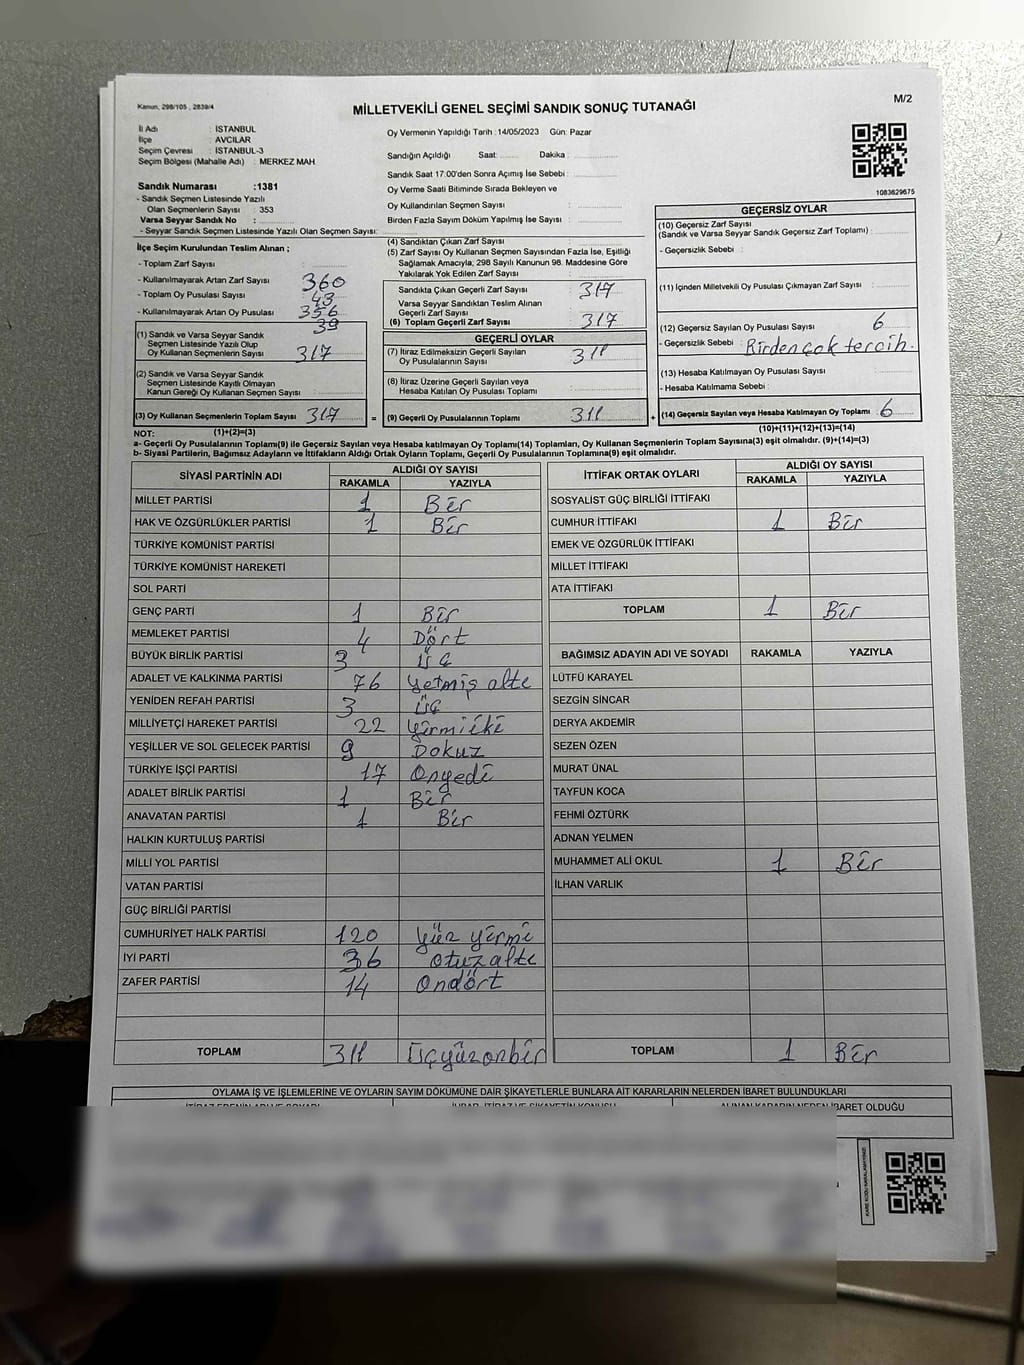 Kanun, 298/105 , 2839/4
MİLLETVEKİLİ GENEL SEÇİMİ SANDIK SONUÇ TUTANAĞI
M/2
İl Adı : İSTANBUL
İlçe : AVCILAR
Seçim Çevresi : İSTANBUL-3
Seçim Bölgesi (Mahalle Adı) : MERKEZ MAH
Sandık Numarası :1381
- Sandık Seçmen Listesinde Yazılı
Olan Seçmenlerin Sayısı : 353
Varsa Seyyar Sandık No :
- Seyyar Sandık Seçmen Listesinde Yazılı Olan Seçmen Sayısı:
Oy Vermenin Yapıldığı Tarih :14/05/2023 Gün: Pazar
Sandığın Açıldığı Saat: Dakika :
Sandık Saat 17:00'den Sonra Açımış İse Sebebi :
Oy Verme Saati Bitiminde Sırada Bekleyen ve
Oy Kullandırılan Seçmen Sayısı :
Birden Fazla Sayım Döküm Yapılmış İse Sayısı :
1083629675
İlçe Seçim Kurulundan Teslim Alınan ;
- Toplam Zarf Sayısı :
- Kullanılmayarak Artan Zarf Sayısı : 360
- Toplam Oy Pusulası Sayısı : 43
- Kullanılmayarak Artan Oy Pusulası : 356
39
(1) Sandık ve Varsa Seyyar Sandık
Seçmen Listesinde Yazılı Olup
Oy Kullanan Seçmenlerin Sayısı : 317
(2) Sandık ve Varsa Seyyar Sandık
Seçmen Listesinde Kayıtlı Olmayan
Kanun Gereği Oy Kullanan Seçmen Sayısı :
(3) Oy Kullanan Seçmenlerin Toplam Sayısı : 317 =
(1)+(2)=(3)
(4) Sandıktan Çıkan Zarf Sayısı :
(5) Zarf Sayısı Oy Kullanan Seçmen Sayısından Fazla İse, Eşitliği
Sağlamak Amacıyla; 298 Sayılı Kanunun 98. Maddesine Göre
Yakılarak Yok Edilen Zarf Sayısı :
Sandıkta Çıkan Geçerli Zarf Sayısı : 317
Varsa Seyyar Sandıktan Teslim Alınan
Geçerli Zarf Sayısı :
(6) Toplam Geçerli Zarf Sayısı : 317
GEÇERLİ OYLAR
(7) İtiraz Edilmeksizin Geçerli Sayılan
Oy Pusulalarının Toplamı : 311
(8) İtiraz Üzerine Geçerli Sayılan veya
Hesaba Katılan Oy Pusulası Toplamı :
(9) Geçerli Oy Pusulalarının Toplamı : 311 +
GEÇERSİZ OYLAR
(10) Geçersiz Zarf Sayısı
(Sandık ve Varsa Seyyar Sandık Geçersiz Zarf Toplamı) :
- Geçersizlik Sebebi :
(11) İçinden Milletvekili Oy Pusulası Çıkmayan Zarf Sayısı :
(12) Geçersiz Sayılan Oy Pusulası Sayısı : 6
- Geçersizlik Sebebi : Birden çok tercih.
(13) Hesaba Katılmayan Oy Pusulası Sayısı :
- Hesaba Katılmama Sebebi :
(14) Geçersiz Sayılan veya Hesaba Katılmayan Oy Toplamı : 6
(10)+(11)+(12)+(13)=(14)
NOT:
a- Geçerli Oy Pusulalarının Toplamı(9) ile Geçersiz Sayılan veya Hesaba katılmayan Oy Toplamı(14) Toplamları, Oy Kullanan Seçmenlerin Toplam Sayısına(3) eşit olmalıdır. (9)+(14)=(3)
b- Siyasi Partilerin, Bağımsız Adayların ve İttifakların Aldığı Ortak Oyların Toplamı, Geçerli Oy Pusulalarının Toplamına(9) eşit olmalıdır.
SİYASİ PARTİNİN ADI
ALDIĞI OY SAYISI
RAKAMLA YAZIYLA
MİLLET PARTİSİ 1 Bir
HAK VE ÖZGÜRLÜKLER PARTİSİ 1 Bir
TÜRKİYE KOMÜNİST PARTİSİ
TÜRKİYE KOMÜNİST HAREKETİ
SOL PARTİ
GENÇ PARTİ 1 Bir
MEMLEKET PARTİSİ 4 Dört
BÜYÜK BİRLİK PARTİSİ 3 üç
ADALET VE KALKINMA PARTİSİ 76 yetmiş altı
YENİDEN REFAH PARTİSİ 3 üç
MİLLİYETÇİ HAREKET PARTİSİ 22 yirmi iki
YEŞİLLER VE SOL GELECEK PARTİSİ 9 Dokuz
TÜRKİYE İŞÇİ PARTİSİ 17 Onyedi
ADALET BİRLİK PARTİSİ 1 Bir
ANAVATAN PARTİSİ 1 Bir
HALKIN KURTULUŞ PARTİSİ
MİLLİ YOL PARTİSİ
VATAN PARTİSİ
GÜÇ BİRLİĞİ PARTİSİ
CUMHURİYET HALK PARTİSİ 120 yüz yirmi
İYİ PARTİ 36 otuz altı
ZAFER PARTİSİ 14 Ondört
TOPLAM 311 Üçyüzonbir
İTTİFAK ORTAK OYLARI
ALDIĞI OY SAYISI
RAKAMLA YAZIYLA
SOSYALİST GÜÇ BİRLİĞİ İTTİFAKI
CUMHUR İTTİFAKI 1 Bir
EMEK VE ÖZGÜRLÜK İTTİFAKI
MİLLET İTTİFAKI
ATA İTTİFAKI
TOPLAM 1 Bir
BAĞIMSIZ ADAYIN ADI VE SOYADI RAKAMLA YAZIYLA
LÜTFÜ KARAYEL
SEZGİN SİNCAR
DERYA AKDEMİR
SEZEN ÖZEN
MURAT ÜNAL
TAYFUN KOCA
FEHMİ ÖZTÜRK
ADNAN YELMEN
MUHAMMET ALİ OKUL 1 Bir
İLHAN VARLIK
TOPLAM 1 Bir
OYLAMA İŞ VE İŞLEMLERİNE VE OYLARIN SAYIM DÖKÜMÜNE DAİR ŞİKAYETLERLE BUNLARA AİT KARARLARIN NELERDEN İBARET BULUNDUKLARI
ALINAN KARARIN NEDEN İBARET OLDUĞU